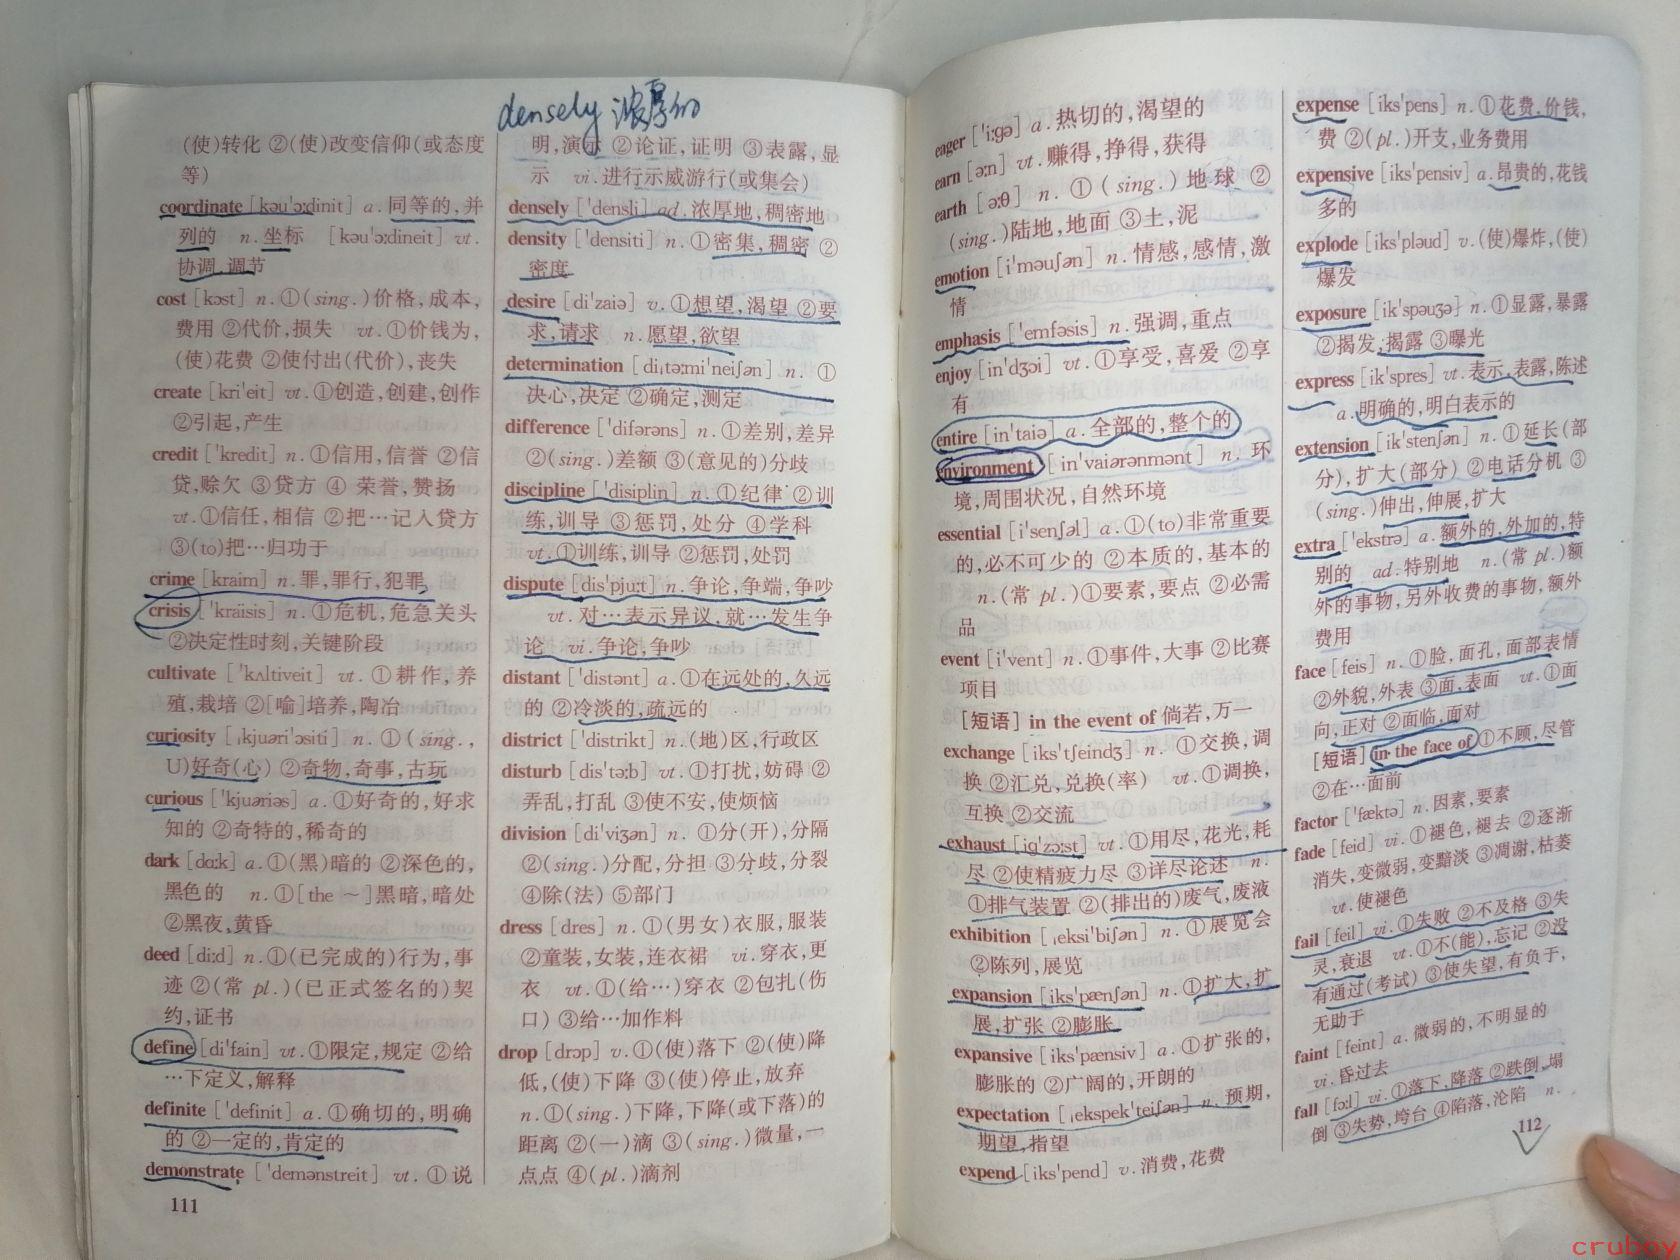 densely 浓厚的
(使)转化 ②(使)改变信仰(或态度
等)
coordinate [kəu'ɔ:dinit] a. 同等的,并
列的 n. 坐标 [kəu'ɔ:dineit] vt.
协调,调节
cost [kɔst] n. ①(sing.)价格,成本,
费用 ②代价,损失 vt. ①价钱为,
(使)花费 ②使付出(代价),丧失
create [kri'eit] vt. ①创造,创建,创作
②引起,产生
credit ['kredit] n. ①信用,信誉 ②信
贷,赊欠 ③贷方 ④ 荣誉,赞扬
vt. ①信任,相信 ②把…记入贷方
③(to)把…归功于
crime [kraim] n. 罪,罪行,犯罪
crisis ['kraisis] n. ①危机,危急关头
②决定性时刻,关键阶段
cultivate ['kʌltiveit] vt. ①耕作,养
殖,栽培 ②[喻]培养,陶冶
curiosity [ˌkjuəri'ɔsiti] n. ①(sing.,
U)好奇(心) ②奇物,奇事,古玩
curious ['kjuəriəs] a. ①好奇的,好求
知的 ②奇特的,稀奇的
dark [dɑ:k] a. ①(黑)暗的 ②深色的,
黑色的 n. ①[the ~]黑暗,暗处
②黑夜,黄昏
deed [di:d] n. ①(已完成的)行为,事
迹 ②(常 pl.)(已正式签名的)契
约,证书
define [di'fain] vt. ①限定,规定 ②给
…下定义,解释
definite ['definit] a. ①确切的,明确
的 ②一定的,肯定的
demonstrate ['demənstreit] vt. ①说
111
明,演示 ②论证,证明 ③表露,显
示 vi. 进行示威游行(或集会)
densely ['densli] ad. 浓厚地,稠密地
density ['densiti] n. ①密集,稠密 ②
密度
desire [di'zaiə] v. ①想望,渴望 ②要
求,请求 n. 愿望,欲望
determination [diˌtə:mi'neiʃən] n. ①
决心,决定 ②确定,测定
difference ['difərəns] n. ①差别,差异
②(sing.)差额 ③(意见的)分歧
discipline ['disiplin] n. ①纪律 ②训
练,训导 ③惩罚,处分 ④学科
vt. ①训练,训导 ②惩罚,处罚
dispute [dis'pju:t] n. 争论,争端,争吵
vt. 对…表示异议,就…发生争
论 vi. 争论,争吵
distant ['distənt] a. ①在远处的,久远
的 ②冷淡的,疏远的
district ['distrikt] n. (地)区,行政区
disturb [dis'tə:b] vt. ①打扰,妨碍 ②
弄乱,打乱 ③使不安,使烦恼
division [di'viʒən] n. ①分(开),分隔
②(sing.)分配,分担 ③分歧,分裂
④除(法) ⑤部门
dress [dres] n. ①(男女)衣服,服装
②童装,女装,连衣裙 vi. 穿衣,更
衣 vt. ①(给…)穿衣 ②包扎(伤
口) ③给…加作料
drop [drɔp] v. ①(使)落下 ②(使)降
低,(使)下降 ③(使)停止,放弃
n. ①(sing.)下降,下降(或下落)的
距离 ②(一)滴 ③(sing.)微量,一
点点 ④(pl.)滴剂
eager ['i:gə] a. 热切的,渴望的
earn [ə:n] vt. 赚得,挣得,获得
earth [ə:θ] n. ①(sing.)地球 ②
(sing.)陆地,地面 ③土,泥
emotion [i'məuʃən] n. 情感,感情,激
情
emphasis ['emfəsis] n. 强调,重点
enjoy [in'dʒɔi] vt. ①享受,喜爱 ②享
有
entire [in'taiə] a. 全部的,整个的
environment [in'vaiərənmənt] n. 环
境,周围状况,自然环境
essential [i'senʃəl] a. ①(to)非常重要
的,必不可少的 ②本质的,基本的
n. (常 pl.)①要素,要点 ②必需
品
event [i'vent] n. ①事件,大事 ②比赛
项目
[短语] in the event of 倘若,万一
exchange [iks'tʃeindʒ] n. ①交换,调
换 ②汇兑,兑换(率) vt. ①调换,
互换 ②交流
exhaust [ig'zɔ:st] vt. ①用尽,花光,耗
尽 ②使精疲力尽 ③详尽论述 n.
①排气装置 ②(排出的)废气,废液
exhibition [ˌeksi'biʃən] n. ①展览会
②陈列,展览
expansion [iks'pænʃən] n. ①扩大,扩
展,扩张 ②膨胀
expansive [iks'pænsiv] a. ①扩张的,
膨胀的 ②广阔的,开朗的
expectation [ˌekspek'teiʃən] n. 预期,
期望,指望
expend [iks'pend] v. 消费,花费
expense [iks'pens] n. ①花费,价钱,
费 ②(pl.)开支,业务费用
expensive [iks'pensiv] a. 昂贵的,花钱
多的
explode [iks'pləud] v. (使)爆炸,(使)
爆发
exposure [ik'spəuʒə] n. ①显露,暴露
②揭发,揭露 ③曝光
express [ik'spres] vt. 表示,表露,陈述
a. 明确的,明白表示的
extension [ik'stenʃən] n. ①延长(部
分),扩大(部分) ②电话分机 ③
(sing.)伸出,伸展,扩大
extra ['ekstrə] a. 额外的,外加的,特
别的 ad. 特别地 n. (常 pl.)额
外的事物,另外收费的事物,额外
费用
face [feis] n. ①脸,面孔,面部表情
②外貌,外表 ③面,表面 vt. ①面
向,正对 ②面临,面对
[短语] in the face of ①不顾,尽管
②在…面前
factor ['fæktə] n. 因素,要素
fade [feid] vi. ①褪色,褪去 ②逐渐
消失,变微弱,变黯淡 ③凋谢,枯萎
vt. 使褪色
fail [feil] vi. ①失败 ②不及格 ③失
灵,衰退 vt. ①不(能),忘记 ②没
有通过(考试) ③使失望,有负于,
无助于
faint [feint] a. 微弱的,不明显的
vi. 昏过去
fall [fɔ:l] vi. ①落下,降落 ②跌倒,塌
倒 ③失势,垮台 ④陷落,沦陷 n.
112
cruboy